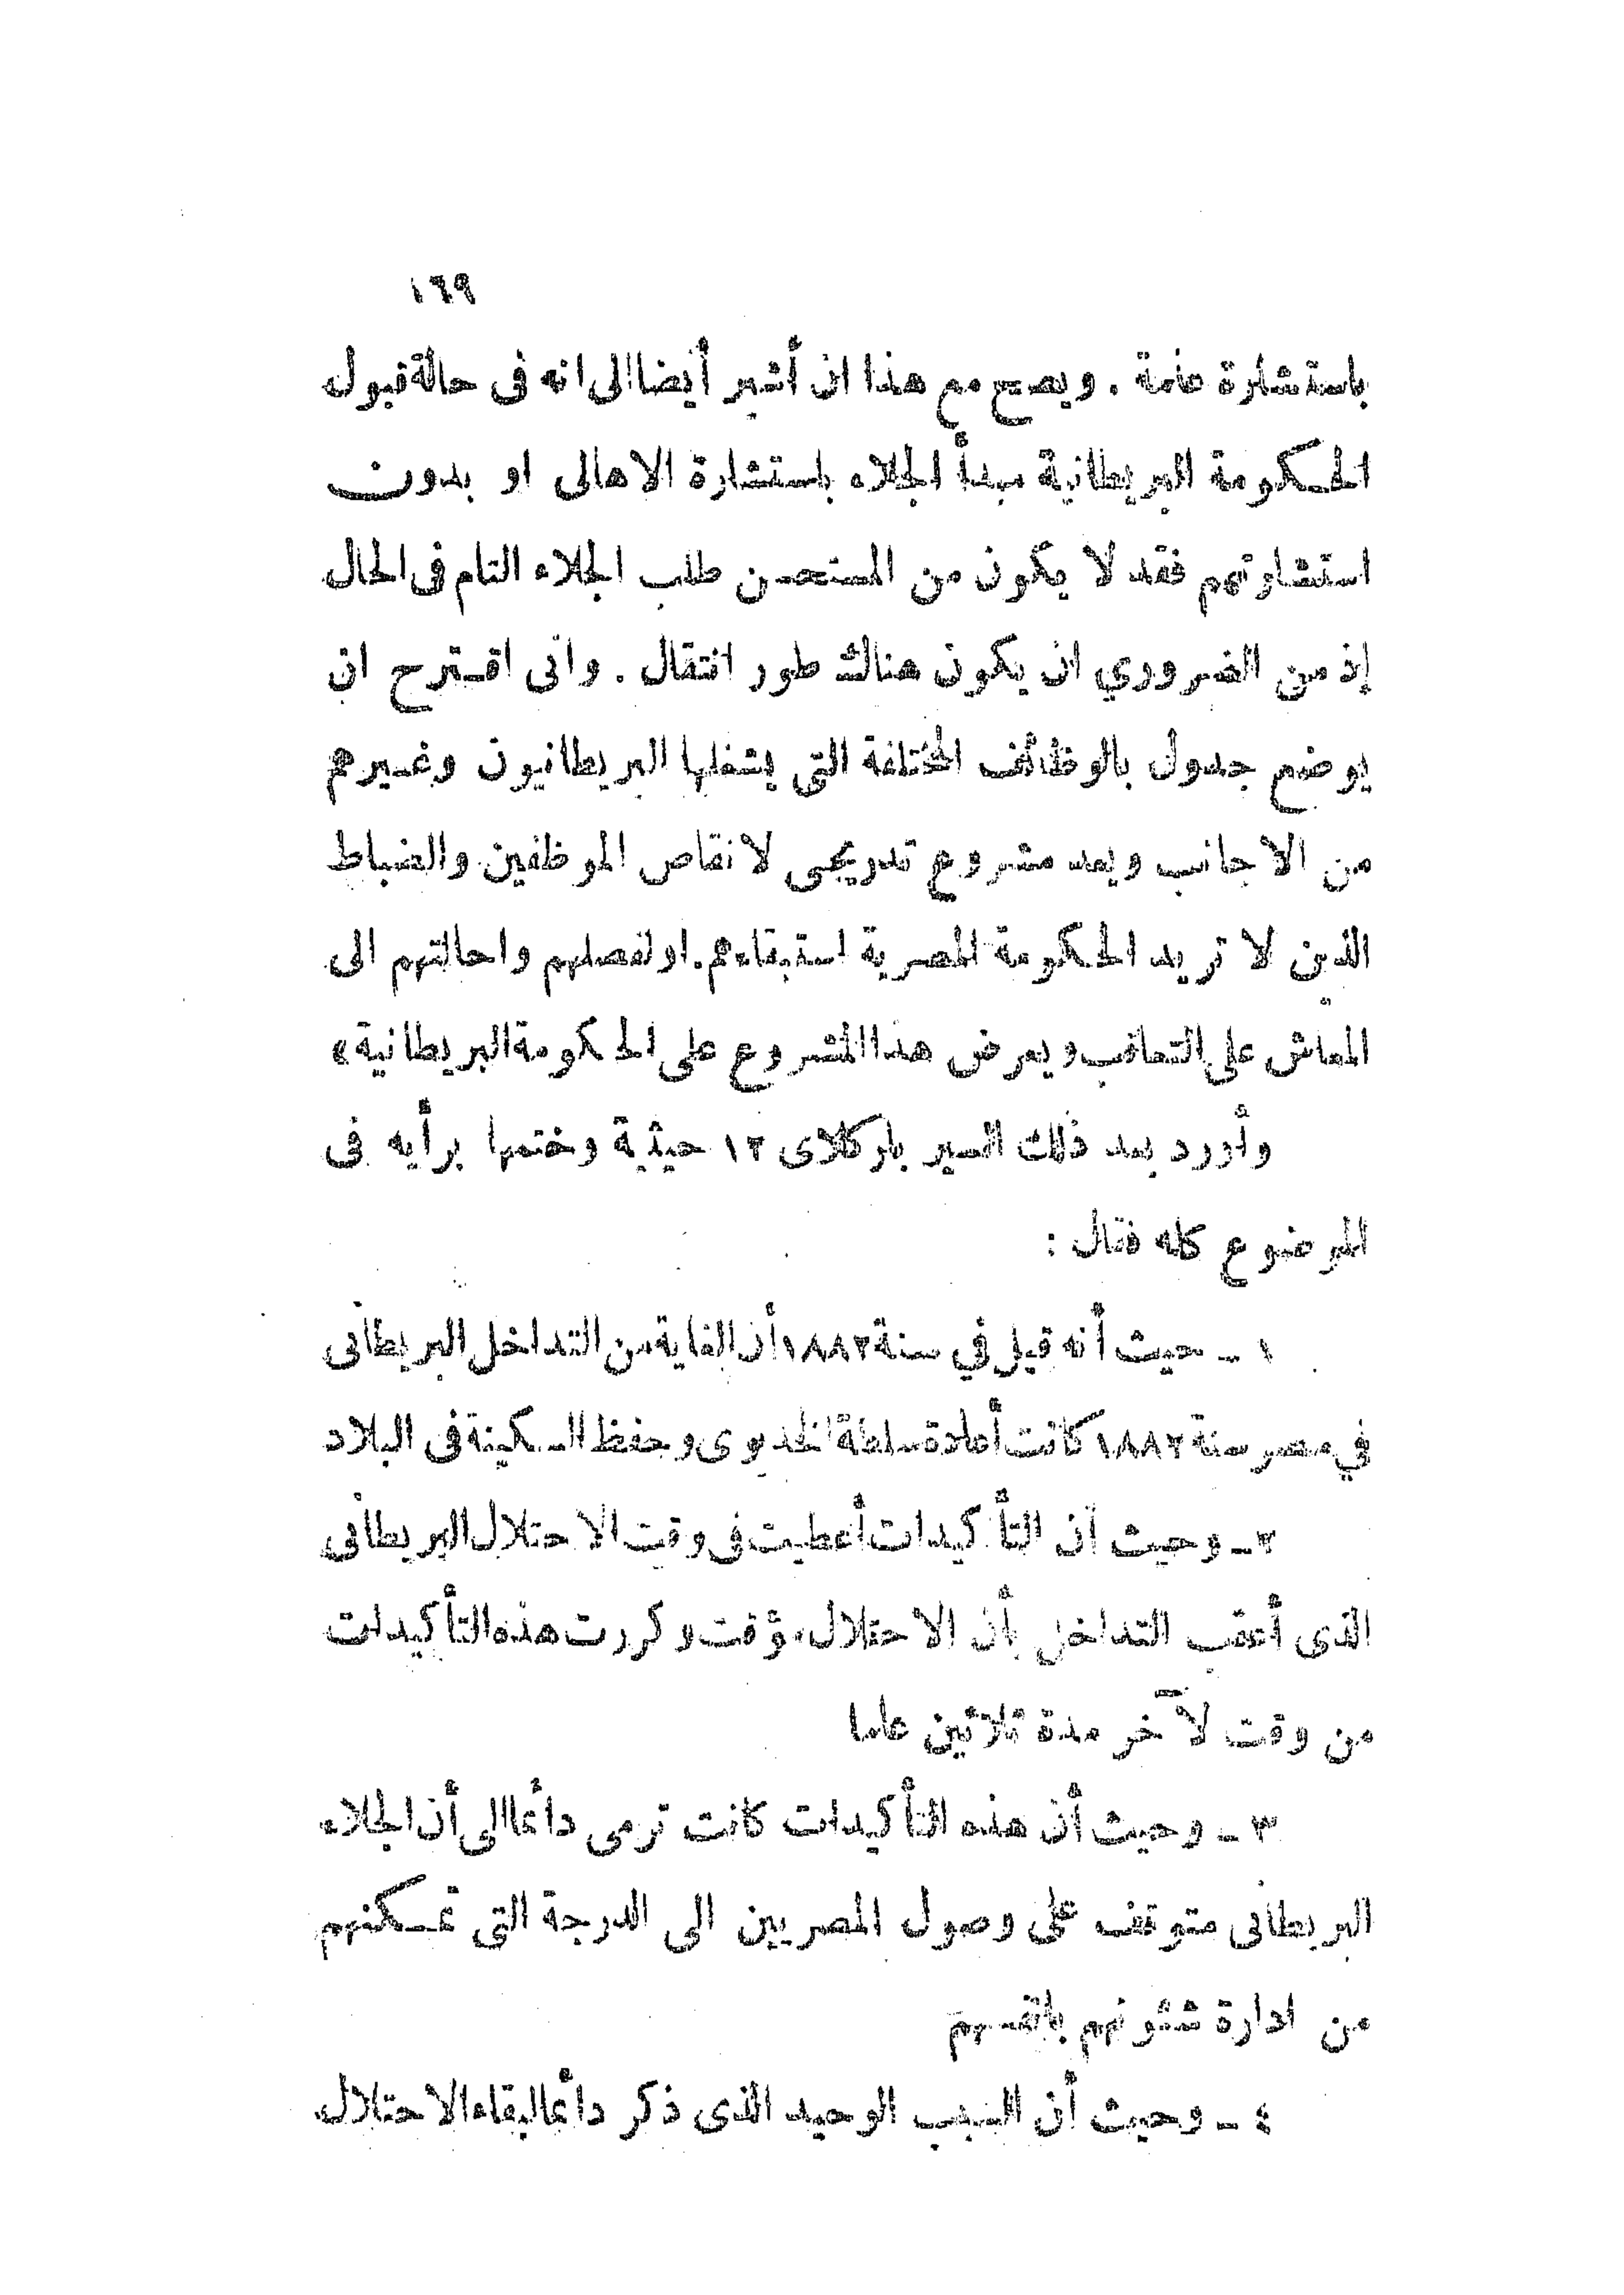 ١٦٩
باستشارة عامة . ويصح مع هذا ان أشير أيضا الى انه فى حالة قبول
الحكومة البريطانية مبدأ الجلاء باستشارة الاهالى او بدون
استشارتهم فقد لا يكون من المستحسن طلب الجلاء التام فى الحال
إذ من الضروري ان يكون هناك طور انتقال . وانى اقترح ان
يوضع جدول بالوظائف المختلفة التى يشغلها البريطانيون وغيرهم
من الاجانب ويعد مشروع تدريجى لانقاص الموظفين والضباط
الذين لا تريد الحكومة المصرية استبقاءهم. اولفصلهم واحالتهم الى
المعاش على التعاقب ويعرض هذا المشروع على الحكومة البريطانية »
وأورد بعد ذلك السير باركلاى ١٢ حيثية وختمها برأيه فى
الموضوع كله فقال :
١ ــ حيث أنه قيل في سنة ١٨٨٢ أن الغاية من التداخل البريطانى
في مصر سنة ١٨٨٢ كانت أعادة سلطة الخديوى وحفظ السكينة فى البلاد
٢ ــ وحيث أن التأكيدات أعطيت فى وقت الاحتلال البريطانى
الذى أعقب التداخل بأن الاحتلال مؤقت وكررت هذه التأكيدات
من وقت لآخر مدة ثلاثين عاما
٣ ــ وحيث أن هذه التأكيدات كانت ترمى دائما الى أن الجلاء
البريطانى متوقف على وصول المصريين الى الدرجة التى تمكنهم
من ادارة شئونهم بانفسهم
٤ ــ وحيث أن السبب الوحيد الذى ذكر دائما لبقاء الاحتلال